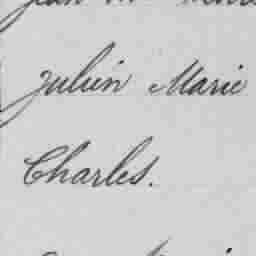 Julien Marie
Charles.